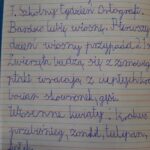 I Szkolny Tydzień Ortografii
Bardzo lubię wiosnę. Pierwszy
dzień wiosny przypada
Zwierzęta budzą się z zimowego
ptaki wracają z ciepłych
bocian skowronek, gęsi.
Wiosenne kwiaty: krokus
przebiśnieg, żonkil, tulipan,